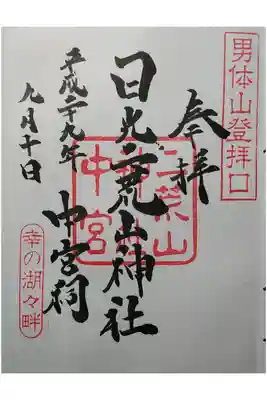 男体山登拝口
奉拝
日光二荒山神社
中宮祠
二荒山
神社
中宮
平成二十九年
九月十日
幸の湖々畔